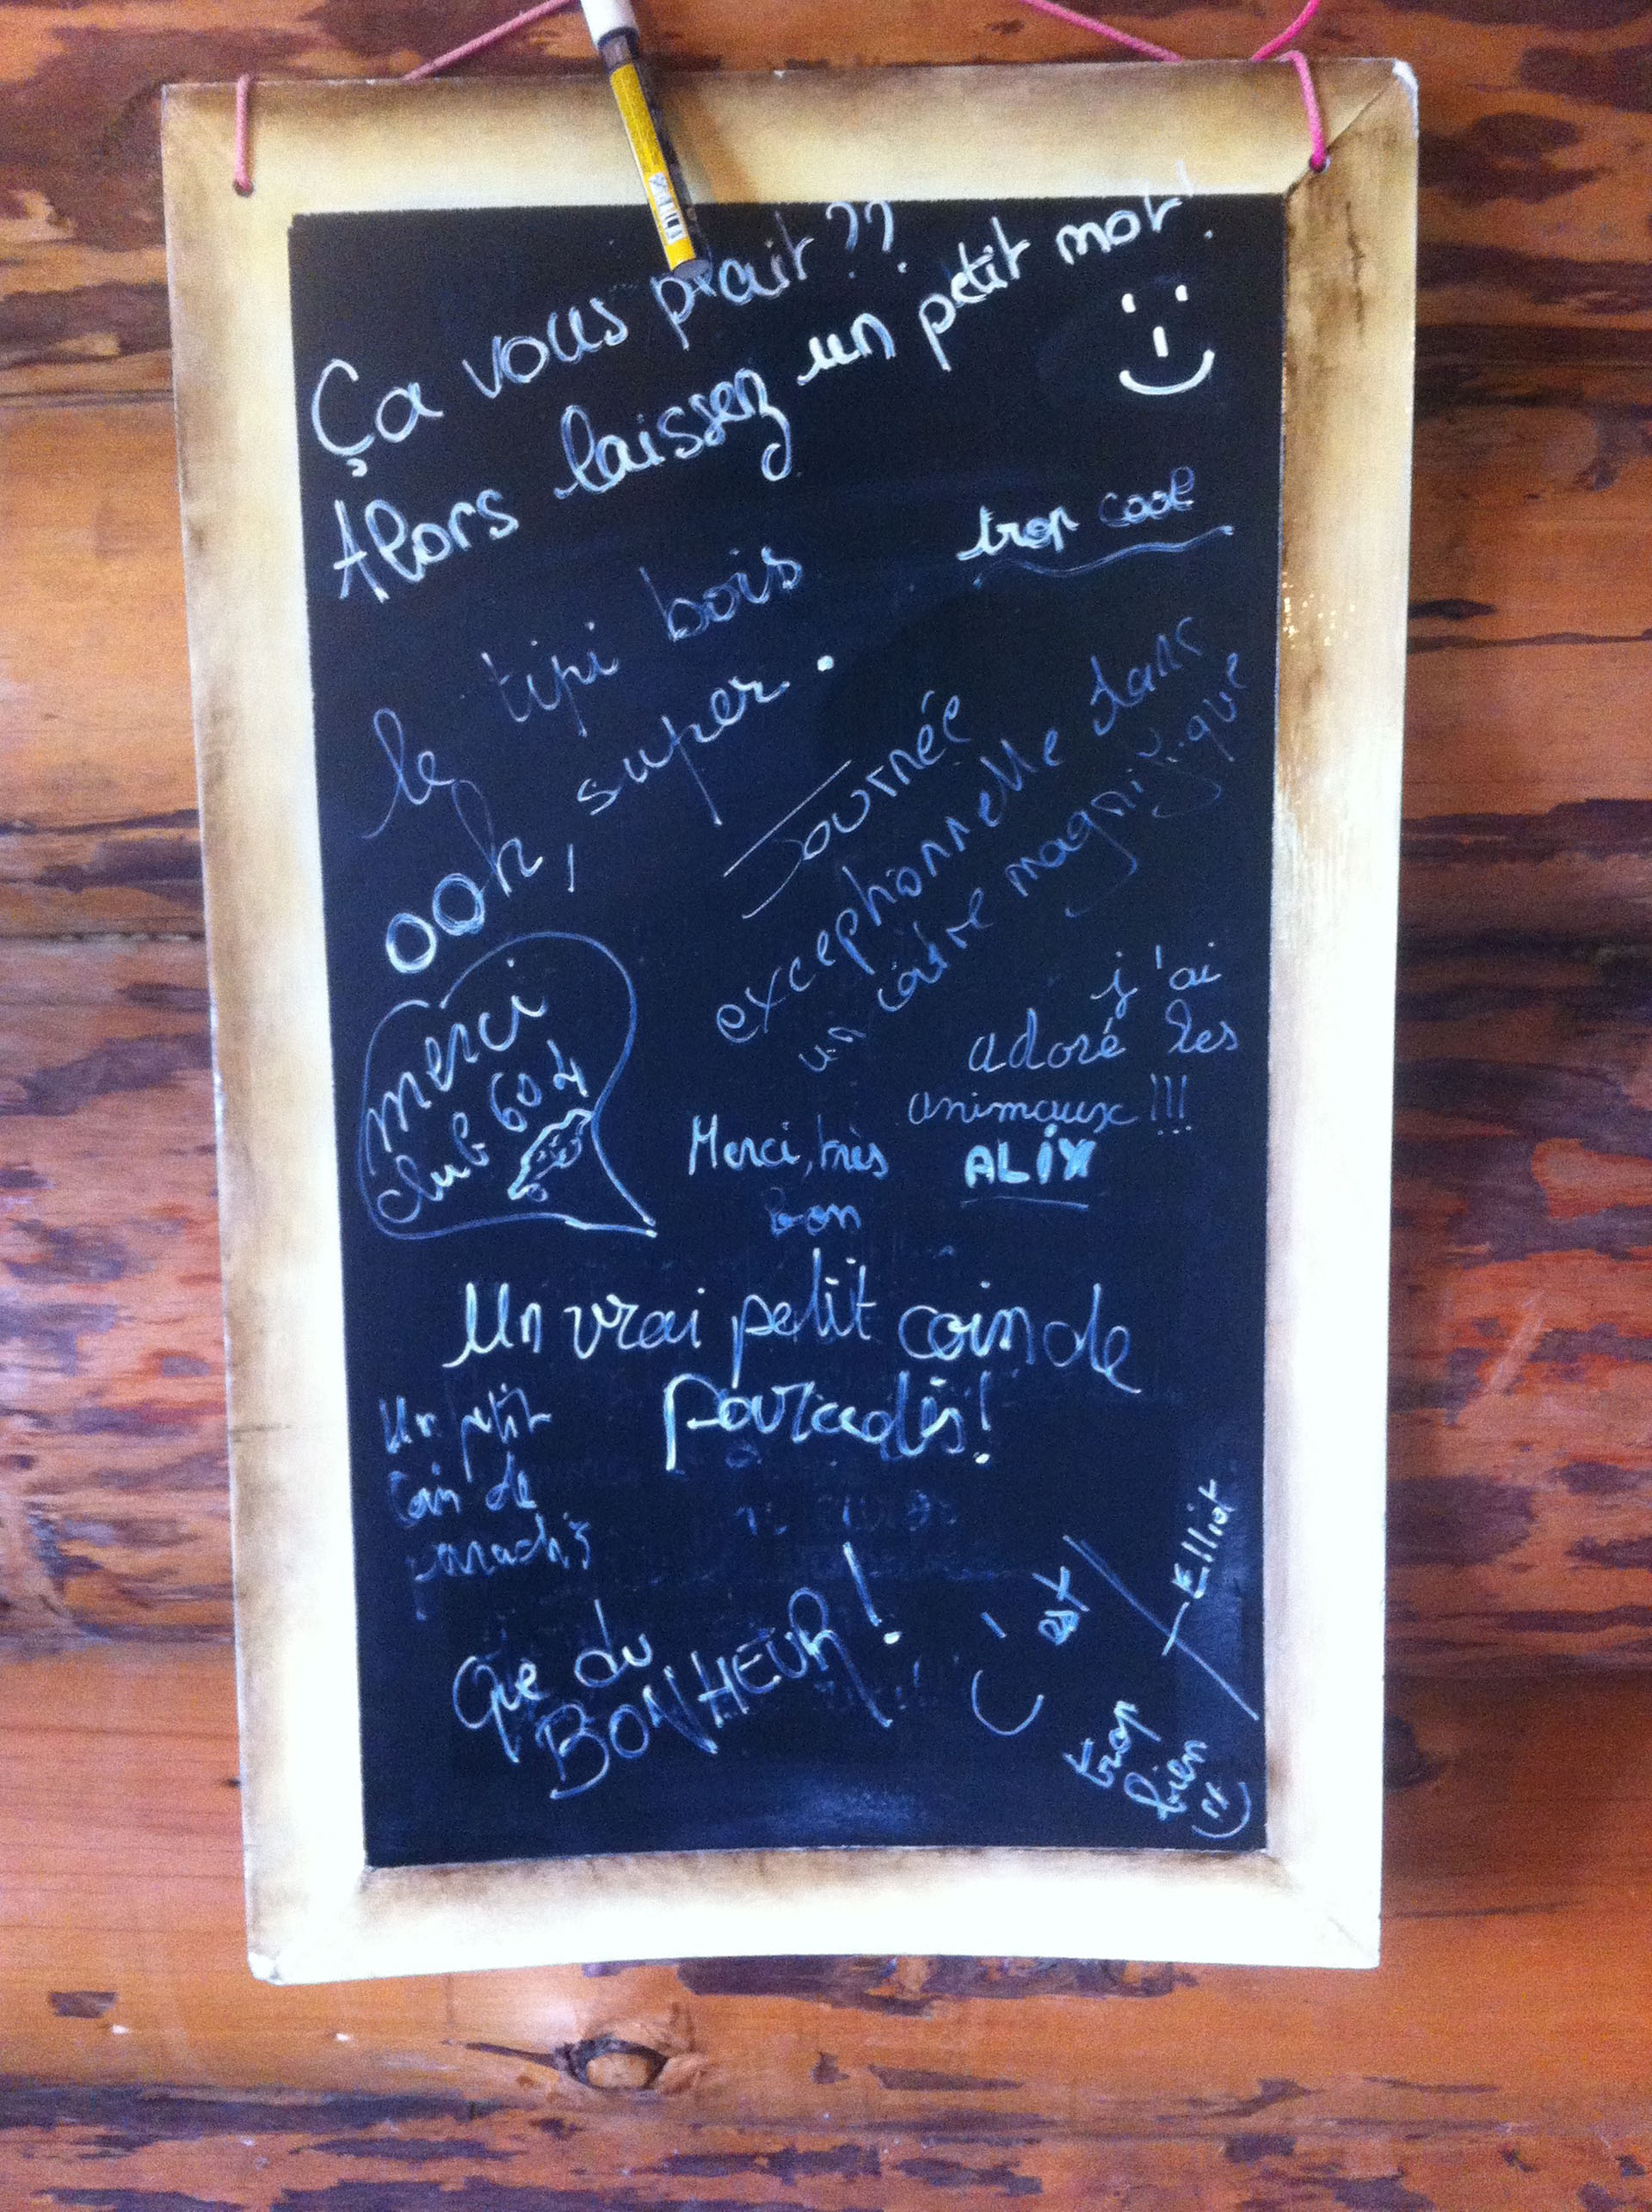 Ça vous plait ??
Alors laissez un petit mot !
trop cool
le tipi bois
ooh, super.
Journée
exceptionnelle dans
un cadre magnifique
merci
club 60 4
j'ai
adoré les
animaux !!!
ALIX
Merci, très
bon
Un vrai petit coin de
paradis !
Un petit
coin de
paradis
Que du
BONHEUR !
C'est
trop
bien
Elliot